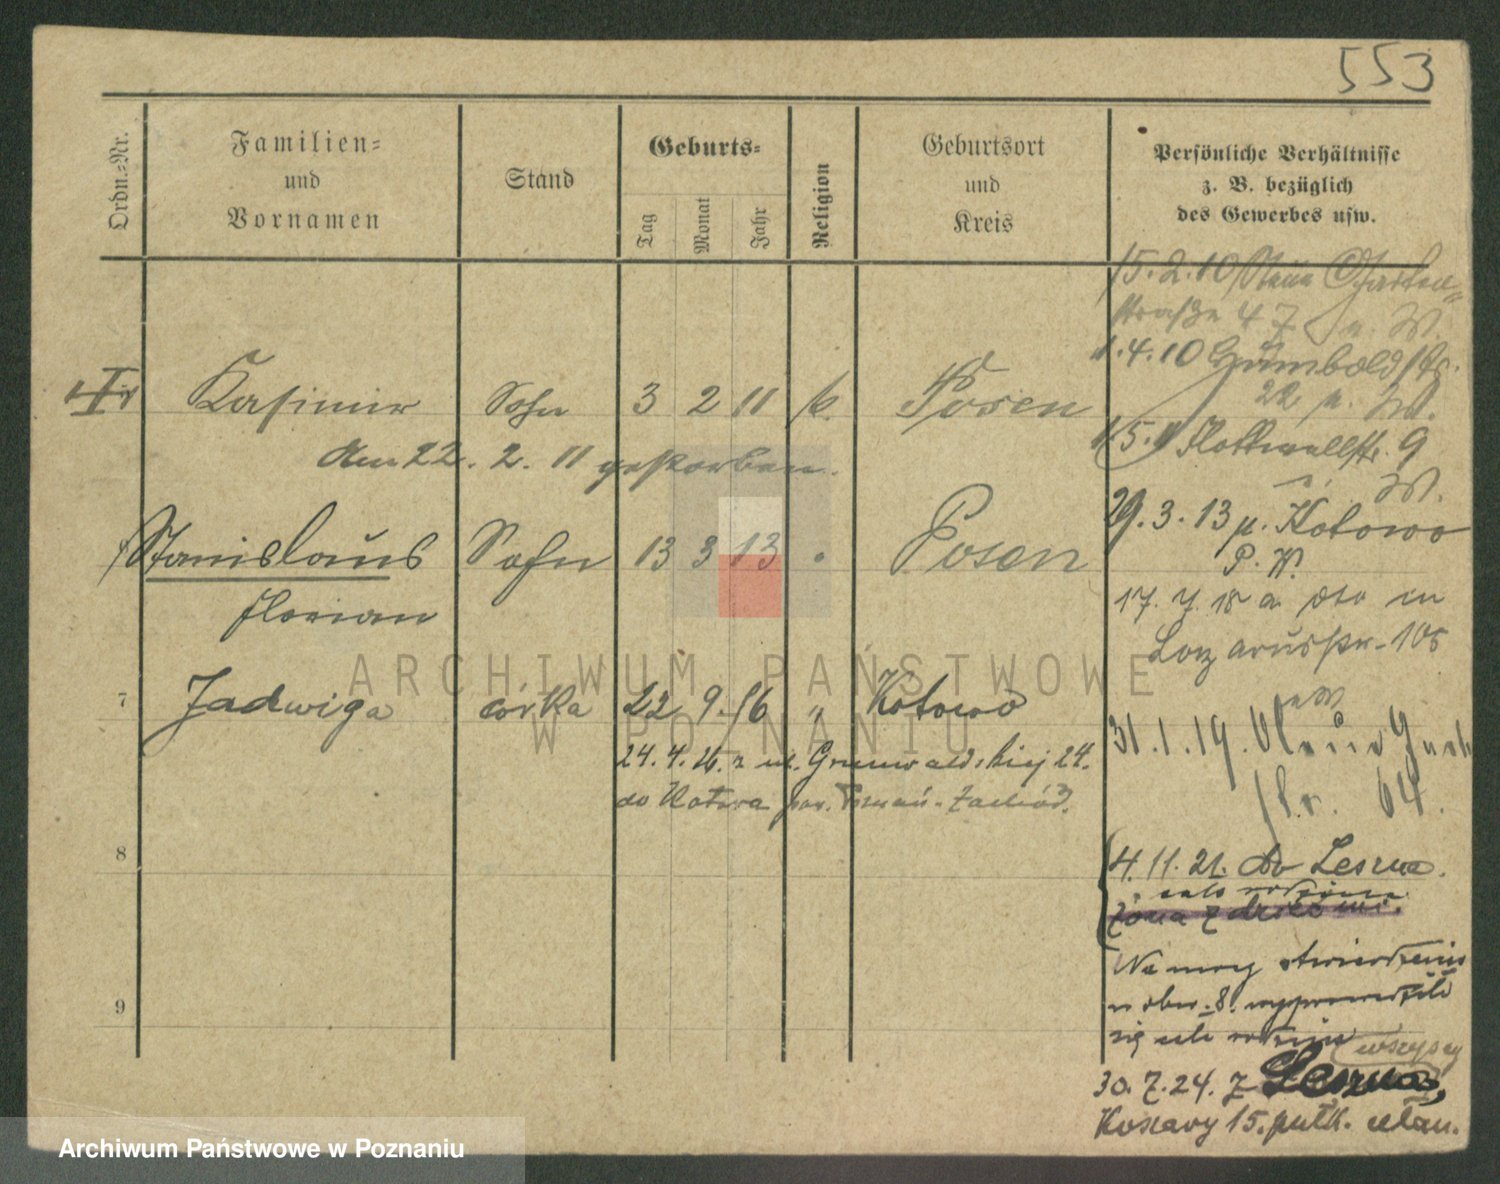 553
Ordn.-Nr.
Familien-
und
Vornamen
Stand
Geburts-
Tag
Monat
Jahr
Religion
Geburtsort
und
Kreis
Persönliche Verhältnisse
z. B. bezüglich
des Gewerbes usw.
Kasimir Sohn 3 2 11 k. Posen
Am 22. 2. 11 gestorben.
Stanislaus Sohn 13 3 13 " Posen
Florian
7 Jadwiga córka 22 9. 16 " Kotowo
24. 4. ul. Grunwaldzkiej 24.
do Kotowa pow. Poznań-Zachód.
8
9
15. 2. 10 Garten-
straße 47 W.
1. 4. 10 Humboldtstr.
22 W.
Flottwellstr. 9
W.
29. 3. 13 n. Kotowo
P. W.
17. 7. 18 a. in
Lazarusstr. 105
31. 1. 19.
64.
4. 11. 21. do Leszna.
cała rodzina
żona z dziećmi.
Na mocy stwierdzenia
w obw. 8. wyprowadziła
się cała rodzina
wszyscy
30. 7. 24. z Leszna,
Koszary 15. pułk. ułan.
ARCHIWUM PAŃSTWOWE
W POZNANIU
Archiwum Państwowe w Poznaniu